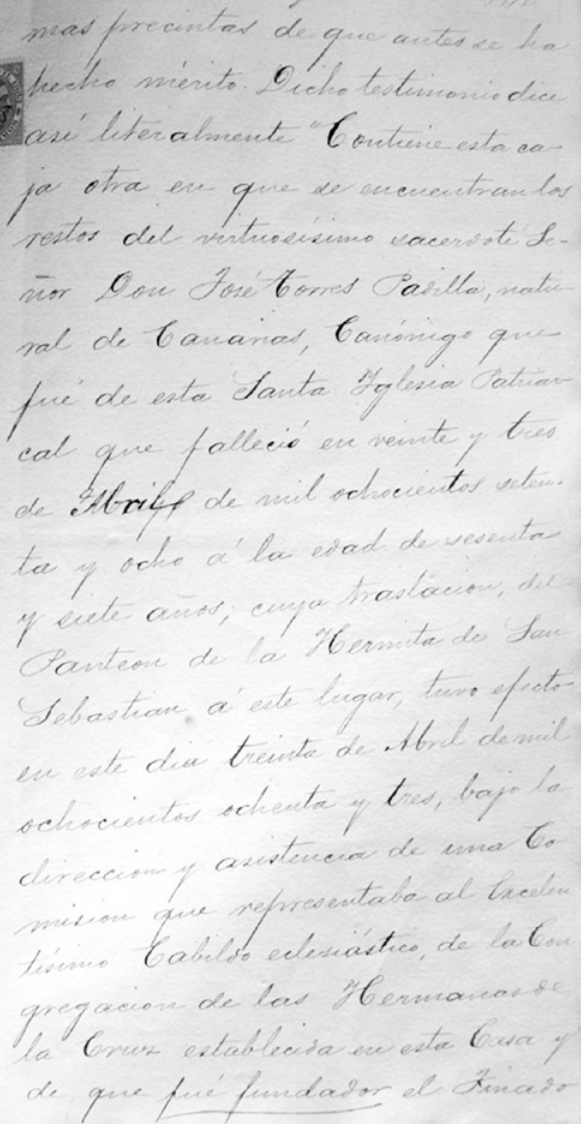 mas precintas de que antes se ha
hecho mérito. Dicho testimonio dice
así literalmente "Contiene esta ca-
ja otra en que se encuentran los
restos del virtuosísimo sacerdote Se-
ñor Don José Torres Padilla, natu-
ral de Canarias, Canónigo que
fué de esta Santa Yglesia Patriar
cal que falleció en veinte y tres
de Abril de mil ochocientos seten-
ta y ocho á la edad de sesenta
y siete años; cuya traslacion, del
Panteon de la Hermita de San
Sebastian á este lugar, tuvo efecto
en este dia treinta de Abril de mil
ochocientos ochenta y tres, bajo la
direccion y asistencia de una Co
mision que representaba al Excelen
tísimo Cabildo eclesiástico, de la Con
gregacion de las Hermanas de
la Cruz establecida en esta Casa y
de que fué fundador el Finado